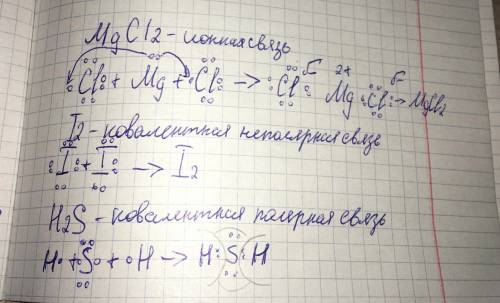 MgCl2 - ионная связь
Cl + Mg + Cl → Cl Mg 2+ Cl → MgCl2
I2 - ковалентная неполярная связь
I + I → I2
H2S - ковалентная полярная связь
H· + S + ·H → H : S : H